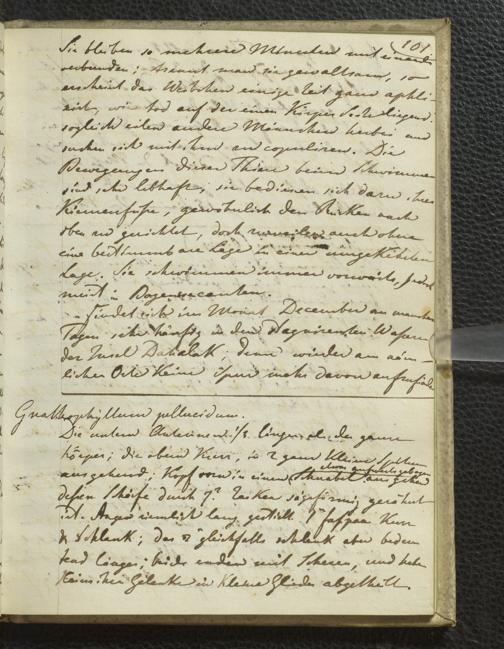 101
Sie bleiben so mehrere Minuten mit einander
verbunden; trennt man sie gewaltsam, so
erscheint das Weibchen einige Zeit ganz
wie tod auf der einen Körper Seite liegend.
sogleich eilen andere Männchen herbei und
suchen sich mit ihm zu copuliren. Die
Bewegungen dieser Thiere beim Schwimmen
sind sehr lebhaft, sie bedienen sich dazu ihrer
Kiemenfüße, gewöhnlich den Rücken nach
oben zu gerichtet, doch zuweilen auch ohne
eine bestimmbare Lage in einer umgekehrten
Lage. Sie schwimmen immer vorwärts,
meist in Bogen
findet sich im Monat December an manchen
Tagen sehr häufig in den Wassern
der Insel Dahalak; dann wieder am näm-
lichen Orte keine Spur mehr davon aufzufinden
Gnathophyllum pellucidum.
Die untern Antennen länger als der ganze
Körper; die obern kurz, in 2 ganz kleine Spitzen
ausgehend; Kopf vorn in einen Schnabel ausgehend
etwas aufwärts gebogen
deßen Schärfe durch 7 Zacken sägeförmig gezähnt
ist. Augen ziemlich lang gestielt. 1s kurz
& schlank; das 2 gleichfalls schlank aber bedeu
tend länger; beide enden mit Scheren, und
Gelenke in kleine Glieder abgetheilt.